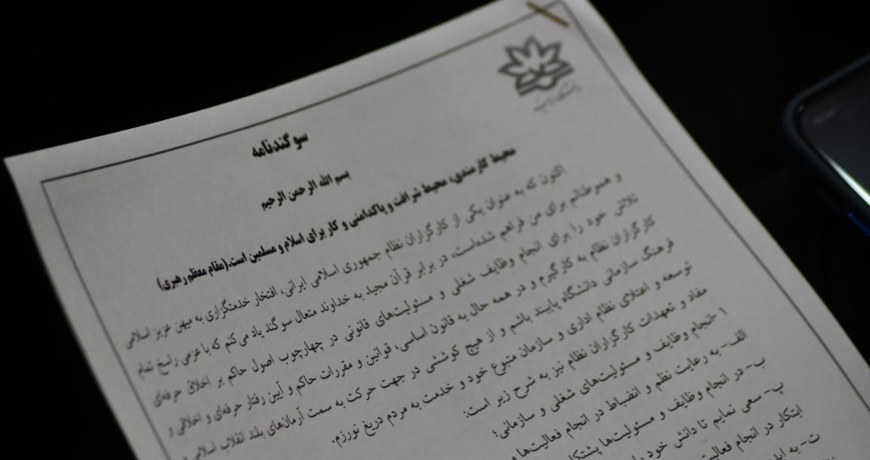 سوگندنامه
بسم الله الرحمن الرحیم
محیط کارمندی، محیط شرافت و پاکدامنی و کار برای اسلام و مسلمین است.(مقام معظم رهبری)
اکنون که به عنوان یکی از کارگزاران نظام جمهوری اسلامی ایرانی، افتخار خدمتگزاری به میهن عزیز اسلامی
و هموطنانم برای من فراهم شده‌است، در برابر قرآن مجید به خداوند متعال سوگند یاد می‌کنم که با عزمی راسخ تمام
تلاش خود را برای انجام وظایف شغلی و مسئولیت‌های قانونی در چهارچوب اصول حاکم بر اخلاق حرفه‌ای
کارگزاران نظام به کارگیرم و در همه حال به قانون اساسی، قوانین و مقررات حاکم و آیین رفتار حرفه‌ای و اخلاقی و
فرهنگ سازمانی دانشگاه پایبند باشم و از هیچ کوششی در جهت حرکت به سمت آرمان‌های بلند انقلاب اسلامی
توسعه و اعتلای نظام اداری و سازمان متبوع خود و خدمت به مردم دریغ نورزم.
مفاد و تعهدات کارگزاران نظام نیز به شرح زیر است:
۱-انجام وظایف و مسئولیت‌های شغلی و سازمانی؛
الف- به رعایت نظم و انضباط در انجام فعالیت‌ها و
ب- در انجام وظایف و مسئولیت‌ها پشتکار
پ- سعی نمایم تا دانش خود را
ابتکار در انجام فعالیت
ت- به